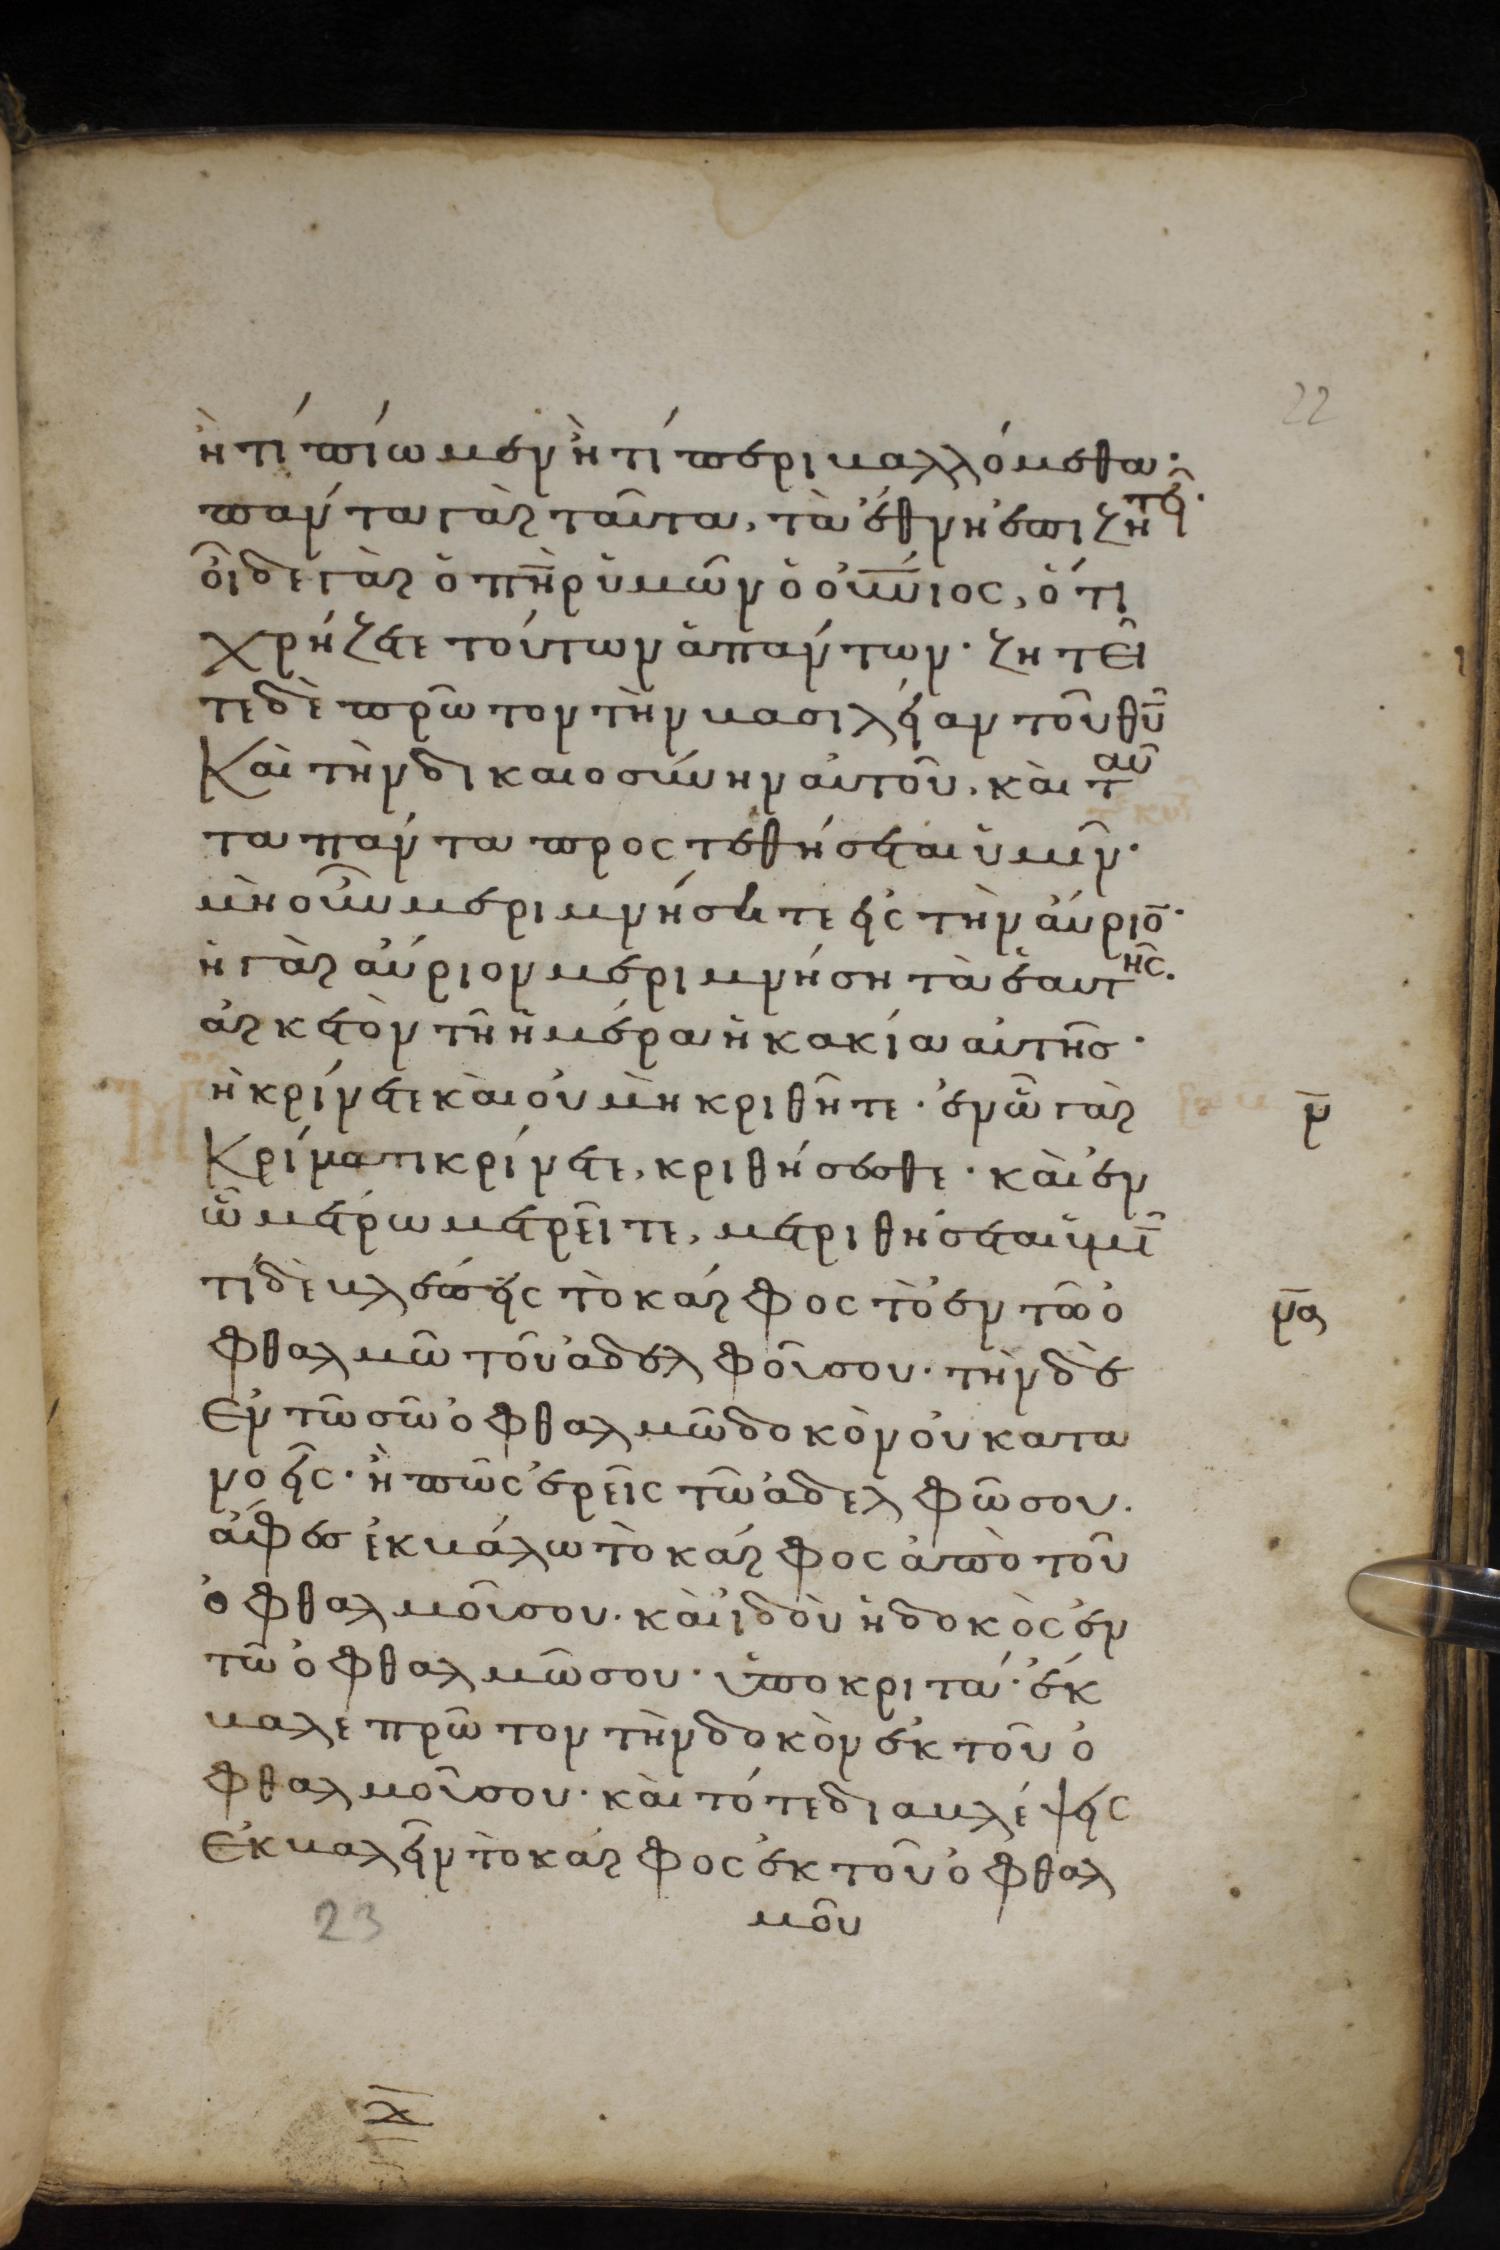 22
ἢ τί πίωμεν ἢ τί περιβαλλόμεθα·
πάντα γὰρ ταῦτα, τὰ ἔθνη ἐπιζητεῖ·
οἶδε γὰρ ὁ πὴρ ὑμῶν ὁ οὐνιος, ὅτι
χρήζετε τούτων ἁπάντων· ζητεῖ
τε δὲ πρῶτον τὴν βασιλείαν τοῦ θῦ
καὶ τὴν δικαιοσύνην αὐτοῦ, καὶ ταῦ
τα πάντα προς τεθήσεται ὑμῖν·
μὴ οὖν μεριμνήσητε εἰς τὴν αὔριο̄·
ἡ γὰρ αὔριον μεριμνήση τὰ ἑαυτῆς.
ἀρκετὸν τῆ ἡμέρα ἡ κακία αὐτῆς·
ὴ κρίνετε καὶ οὐ μὴ κριθῆτε· ἐν ᾧ γὰρ
ν̄
κρίματι κρίνετε, κριθήσεσθε· καὶ ἐν
ᾧ μέτρω μετρεῖτε, μετριθήσεται ὑμῖ
τί δὲ βλέπεις τὸ κάρφος τὸ ἐν τῶ ὀ
ν̄α
φθαλμῶ τοῦ ἀδελφοῦ σου· τὴν δὲ
ἐν τῶ σῶ ὀφθαλμῶ δοκὸν οὐ κατα
νοεῖς· ἢ πῶς ἐρεῖς τῶ ἀδελφῶ σου.
ἄφες ἐκβάλω τὸ κάρφος ἀπὸ τοῦ
ὀφθαλμοῦ σου· καὶ ἰδοὺ ἡ δοκὸς ἐν
τῶ ὀφθαλμῶ σου· ὑποκριτά· ἔκ
βαλε πρῶτον τὴν δοκὸν ἐκ τοῦ ὀ
φθαλμοῦ σου· καὶ τότε διαβλέψεις
ἐκβαλεῖν τὸ κάρφος ἐκ τοῦ ὀφθαλ
μοῦ
23